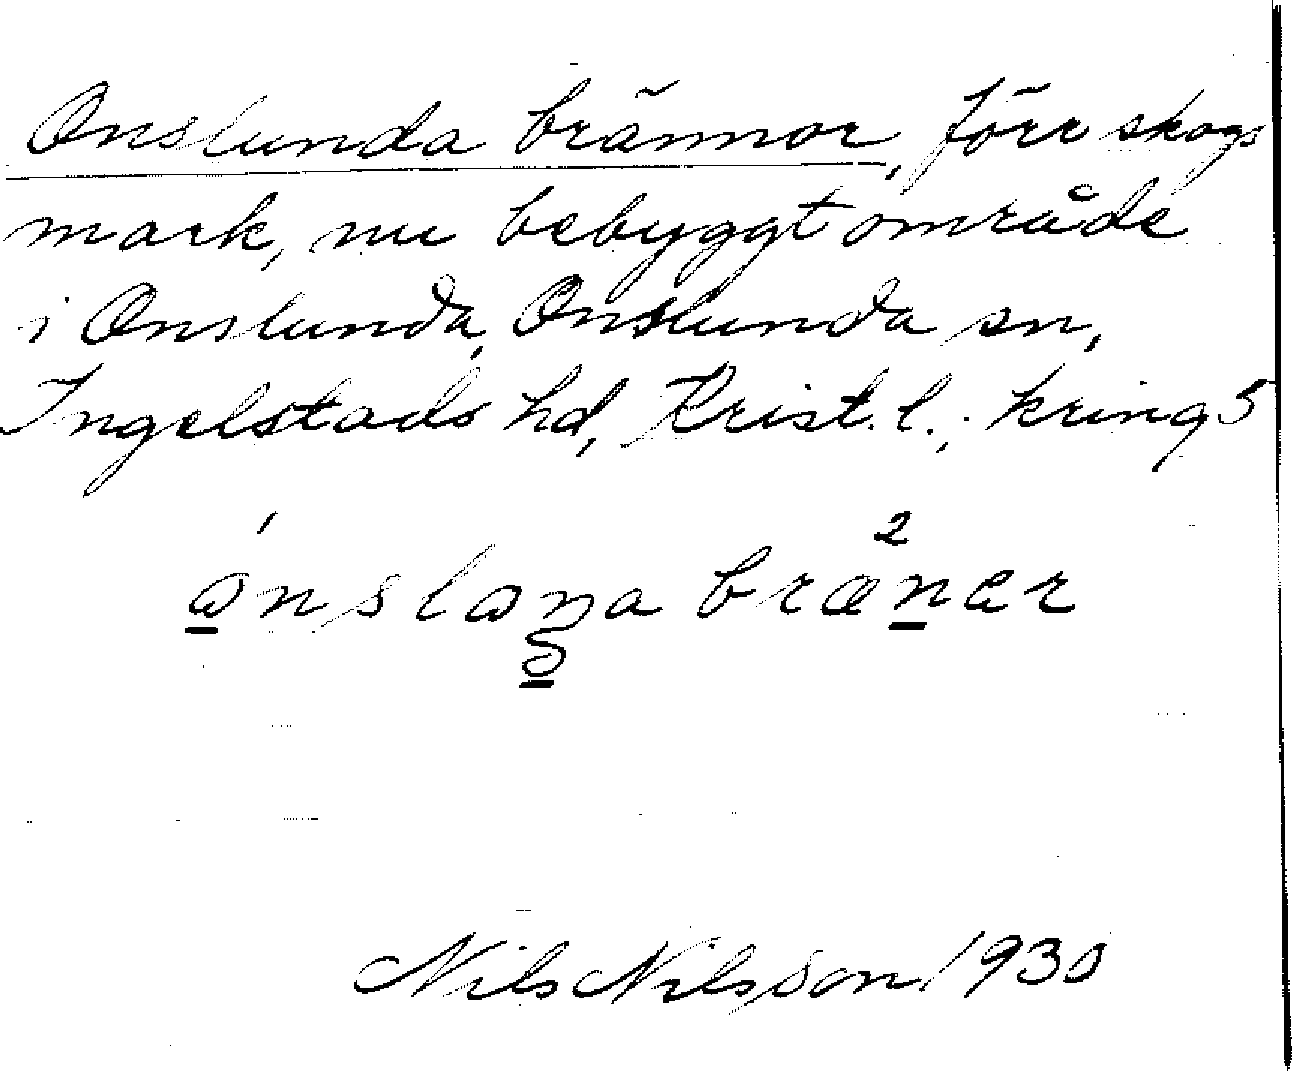 Onslunda brännor, förr skogs
mark, nu bebyggt område
i Onslunda, Onslunda sn,
Ingelstads hd, Krist. l., kring 5
Nils Nilsson 1930